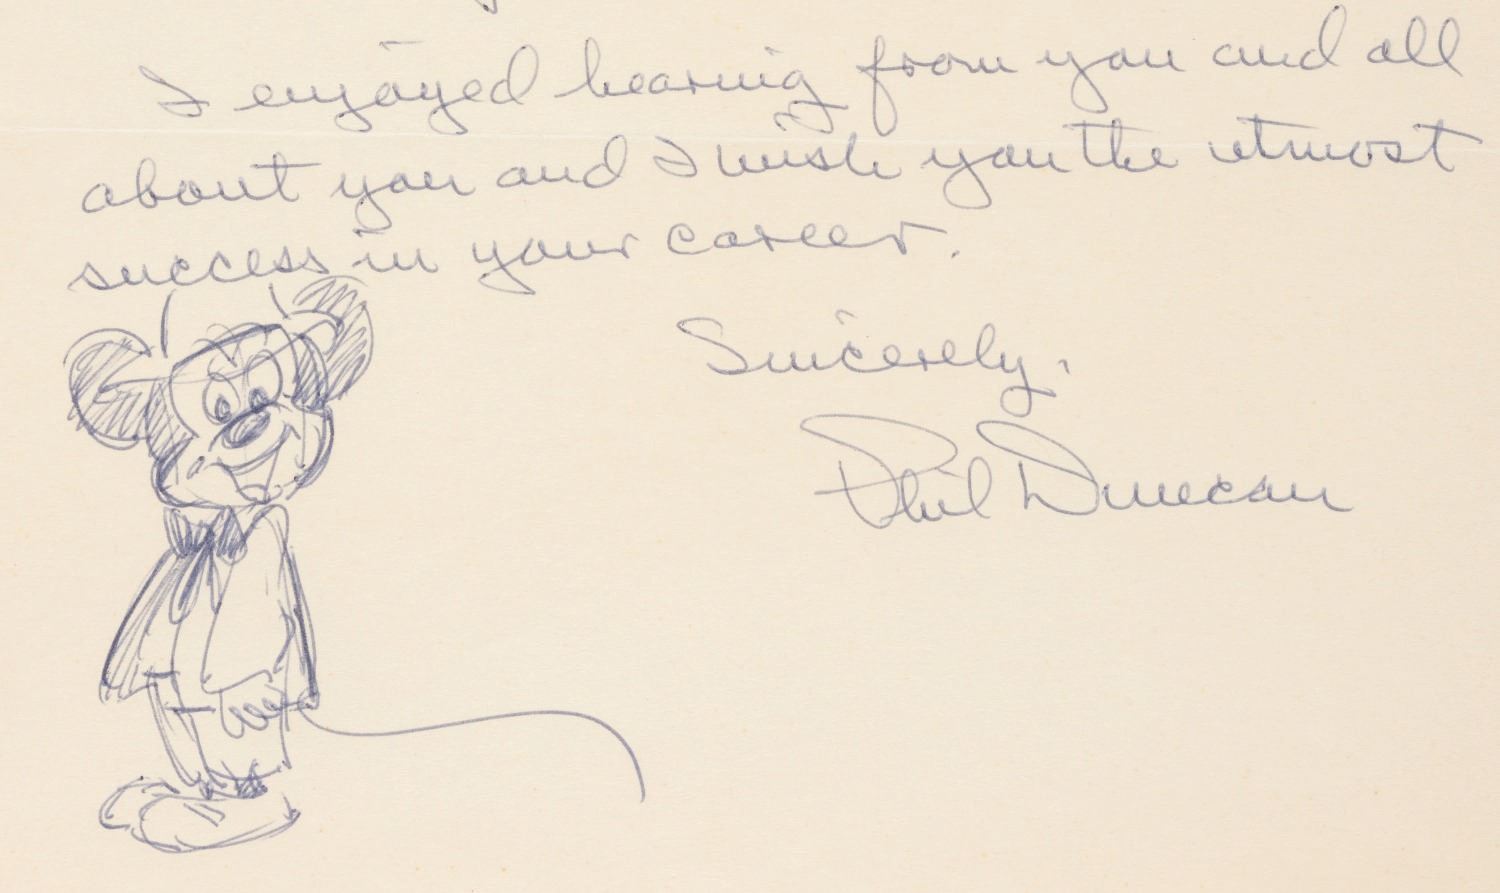 I enjoyed hearing from you and all
about you and I wish you the utmost
success in your career.
Sincerely,
Phil Duncan